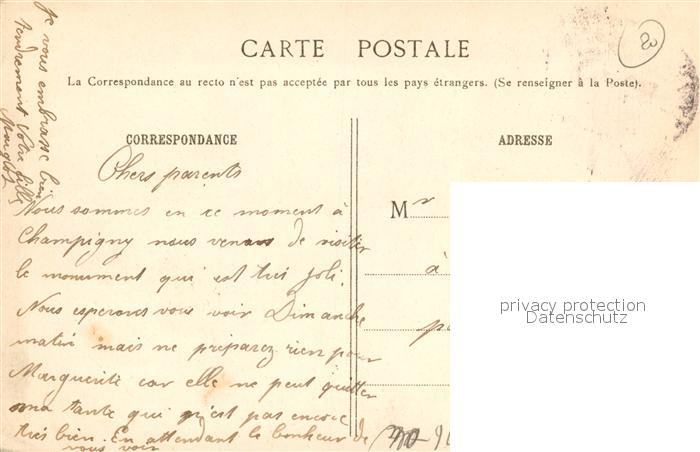 CARTE POSTALE
20
La Correspondance au recto n'est pas acceptée par tous les pays étrangers. (Se renseigner à la Poste).
CORRESPONDANCE
Chers parents
Nous sommes en ce moment à
Champigny nous venons de visiter
le monument qui est très joli.
Nous esperons vous voir Dimanche
matin mais ne préparez rien pour
Marguerite car elle ne peut quitter
ma tante qui n'est pas encore
très bien. En attendant le bonheur de
vous voir
Je vous embrasse bien
tendrement Votre fille
ADRESSE
Mr
à
privacy protection
Datenschutz